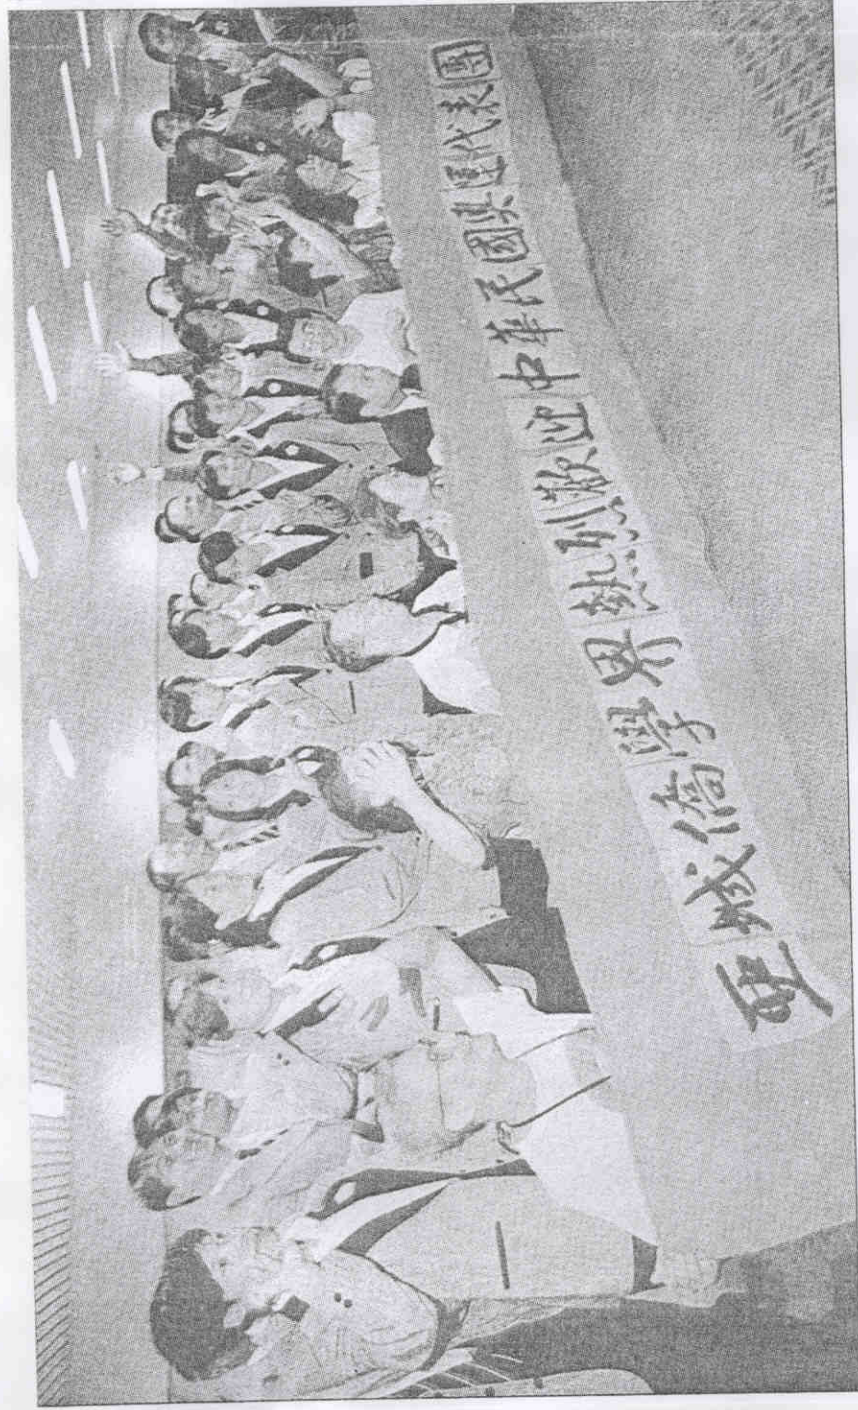 亞城僑學界熱烈歡迎中華民國奧運代表團